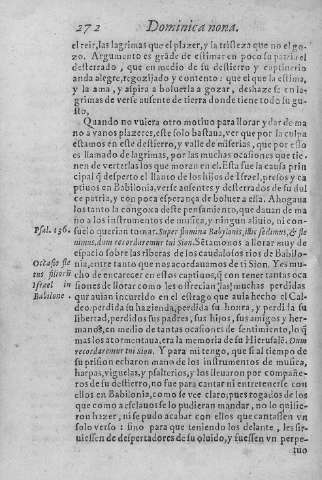 272 Dominica nona.
el reir, las lagrimas que el plazer, y la tristeza que no el go-
zo. Argumento es grãde de estimar en poco su patria el
desterrado, que en medio de su destierro y captiuerio
anda alegre, regozijado y contento: que el que la estima,
y la ama, y aspira a boluerla a gozar, deshazese en la-
grimas de verse ausente de tierra donde tiene todo su gu-
sto,
Quando no vuiera otro motiuo para llorar y dar de ma
no a vanos plazeres, este solo bastaua, ver que por la culpa
estamos en este destierro, y valle de miserias, que por esto
es llamado de lagrimas, por las muchas ocasiones que tie-
nen de verterlas los que moran en el. Esta fue la causa prin
cipal q̃ desperto el llanto de los hijos de Israel, presos y ca
ptiuos en Babilonia, verse ausentes y desterrados de su dul
ce patria, y con poca esperança de boluer a ella. Ahogaua
los tanto la congoxa deste pensamiento, que dauan de ma
no a los instrumentos de musica, y ningun aliuio, ni con-
Psal. 136. suelo querian tomar. Super flumina Babylonis, illic sedimus, & fle
uimus, dum recordaremur tui Sion. Sẽtamonos a llorar muy de
espacio sobre las riberas de los caudalosos rios de Babilo
Octasio fle nia, entre tanto que nos acordauamos de ti Sion. Yes mu-
tus filiorũ cho de encarecer en estos captiuos, q̃ con tener tantas oca
Israel in siones de llorar como les offrecian [las] muchas perdidas
Babilone. que auian incurrido en el estrago que auia hecho el Cal-
deo. perdida su hazienda, perdida su honra, y perdida su
libertad, perdidos sus padres, sus hijos, sus amigos y her-
manos, en medio de tantas ocasiones de sentimiento, lo q̃
mas los atormentaua, era la memoria de su Hierusalẽ. Dum
recordaremur tui sion. Y para mi tengo, que si al tiempo de
su prision echaron mano de los instrumentos de musica,
harpas, viguelas, y psalterios, y los lleuaron por compañe-
ros de su destierro, no fue para cantar ni entretenerse con
ellos en Babilonia, como se vee claro; pues rogados de los
que como a esclauos se lo pudieran mandar, no lo quisie-
ron hazer, ni se pudo acabar con ellos que cantassen vn
solo verso: sino para que teniendo los delante, les sir-
uiessen de despertadores de su oluido, y fuessen vn perpe-
tuo